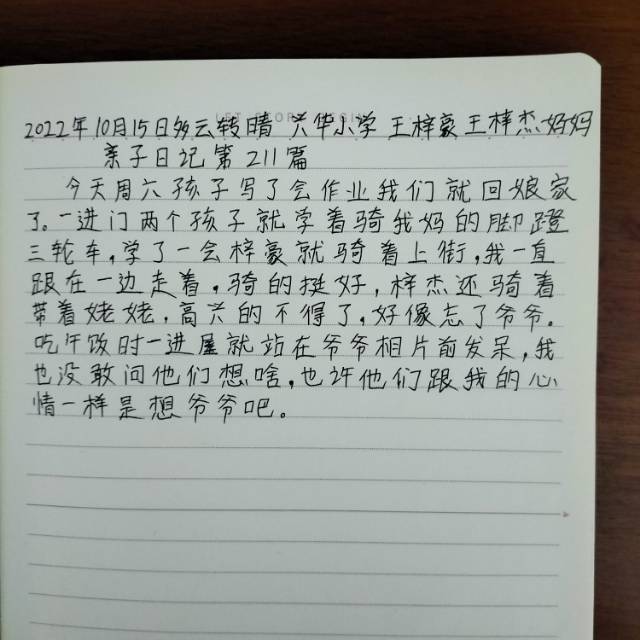 2022年10月15日多云转晴 兴华小学 王梓豪王梓杰妈妈
亲子日记第211篇
今天周六孩子写了会作业我们就回娘家
了。一进门两个孩子就学着骑我妈的脚蹬
三轮车,学了一会梓豪就骑着上街,我一直
跟在一边走着,骑的挺好,梓杰还骑着
带着姥姥,高兴的不得了,好像忘了爷爷。
吃午饭时一进屋就站在爷爷相片前发呆,我
也没敢问他们想啥,也许他们跟我的心
情一样是想爷爷吧。